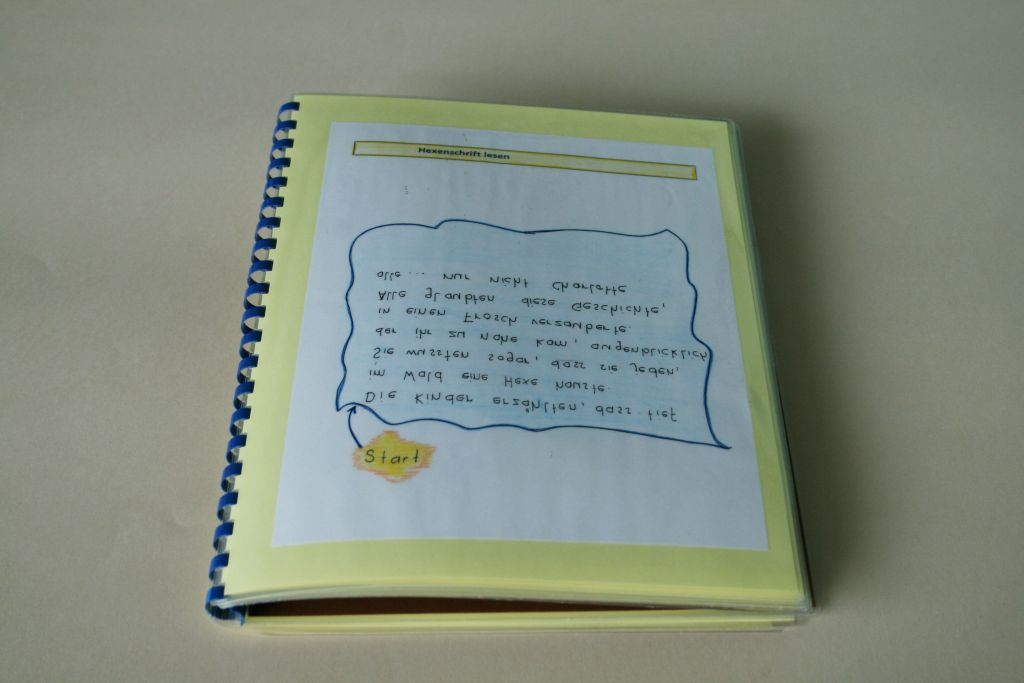 Hexenschrift lesen
Die Kinder erzählten, dass tief
im Wald eine Hexe hauste.
Sie wussten sogar, dass sie jeden,
der ihr zu nahe kam, augenblicklich
in einen Frosch verzauberte.
Alle glaubten diese Geschichte,
alle... nur nicht Charlotte
Start